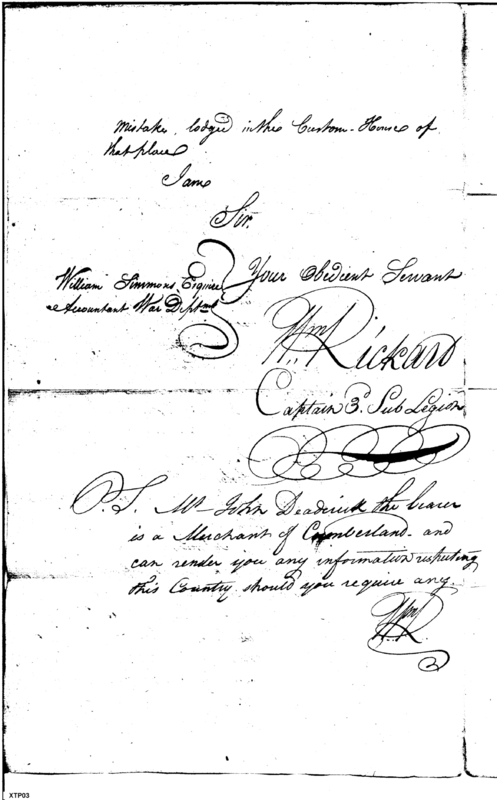 Mistake, lodged in the Custom-House of
that place
I am
Sir.
Your Obedient Servant
William Simmons, Esquire
Accountant War Deptmt
Wm Rickard
Captain 3d Sub Legion
P.S. Mr John Deaderick the bearer
is a Merchant of Cumberland - and
can render you any information respecting
this Country should you require any.
Wm R.
XTP03